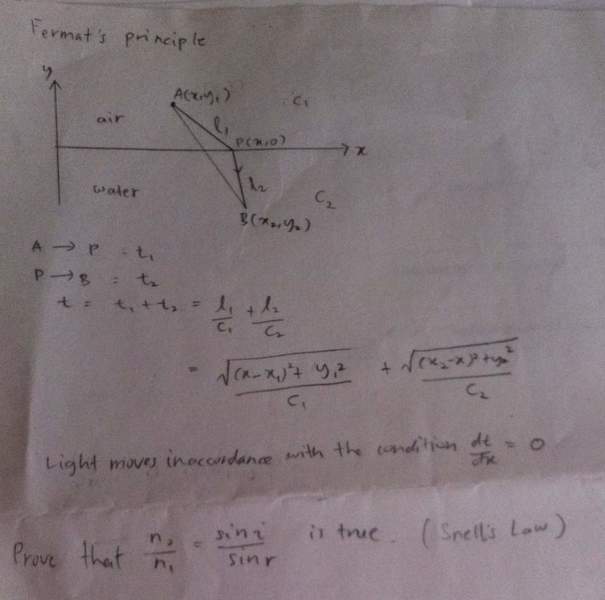 Fermat's principle
y
A(x,y₁)
C₁
air
l₁
P(x,0)
x
water
l₂
C₂
B(x₂,y₂)
A → P = t₁
P → B = t₂
t = t₁ + t₂ = l₁/C₁ + l₂/C₂
= √((x-x₁)²+ y₁²)/C₁ + √((x₂-x)²+y₂²)/C₂
Light moves in accordance with the condition dt/dx = 0
Prove that n₂/n₁ = sin i/sin r is true. (Snell's Law)